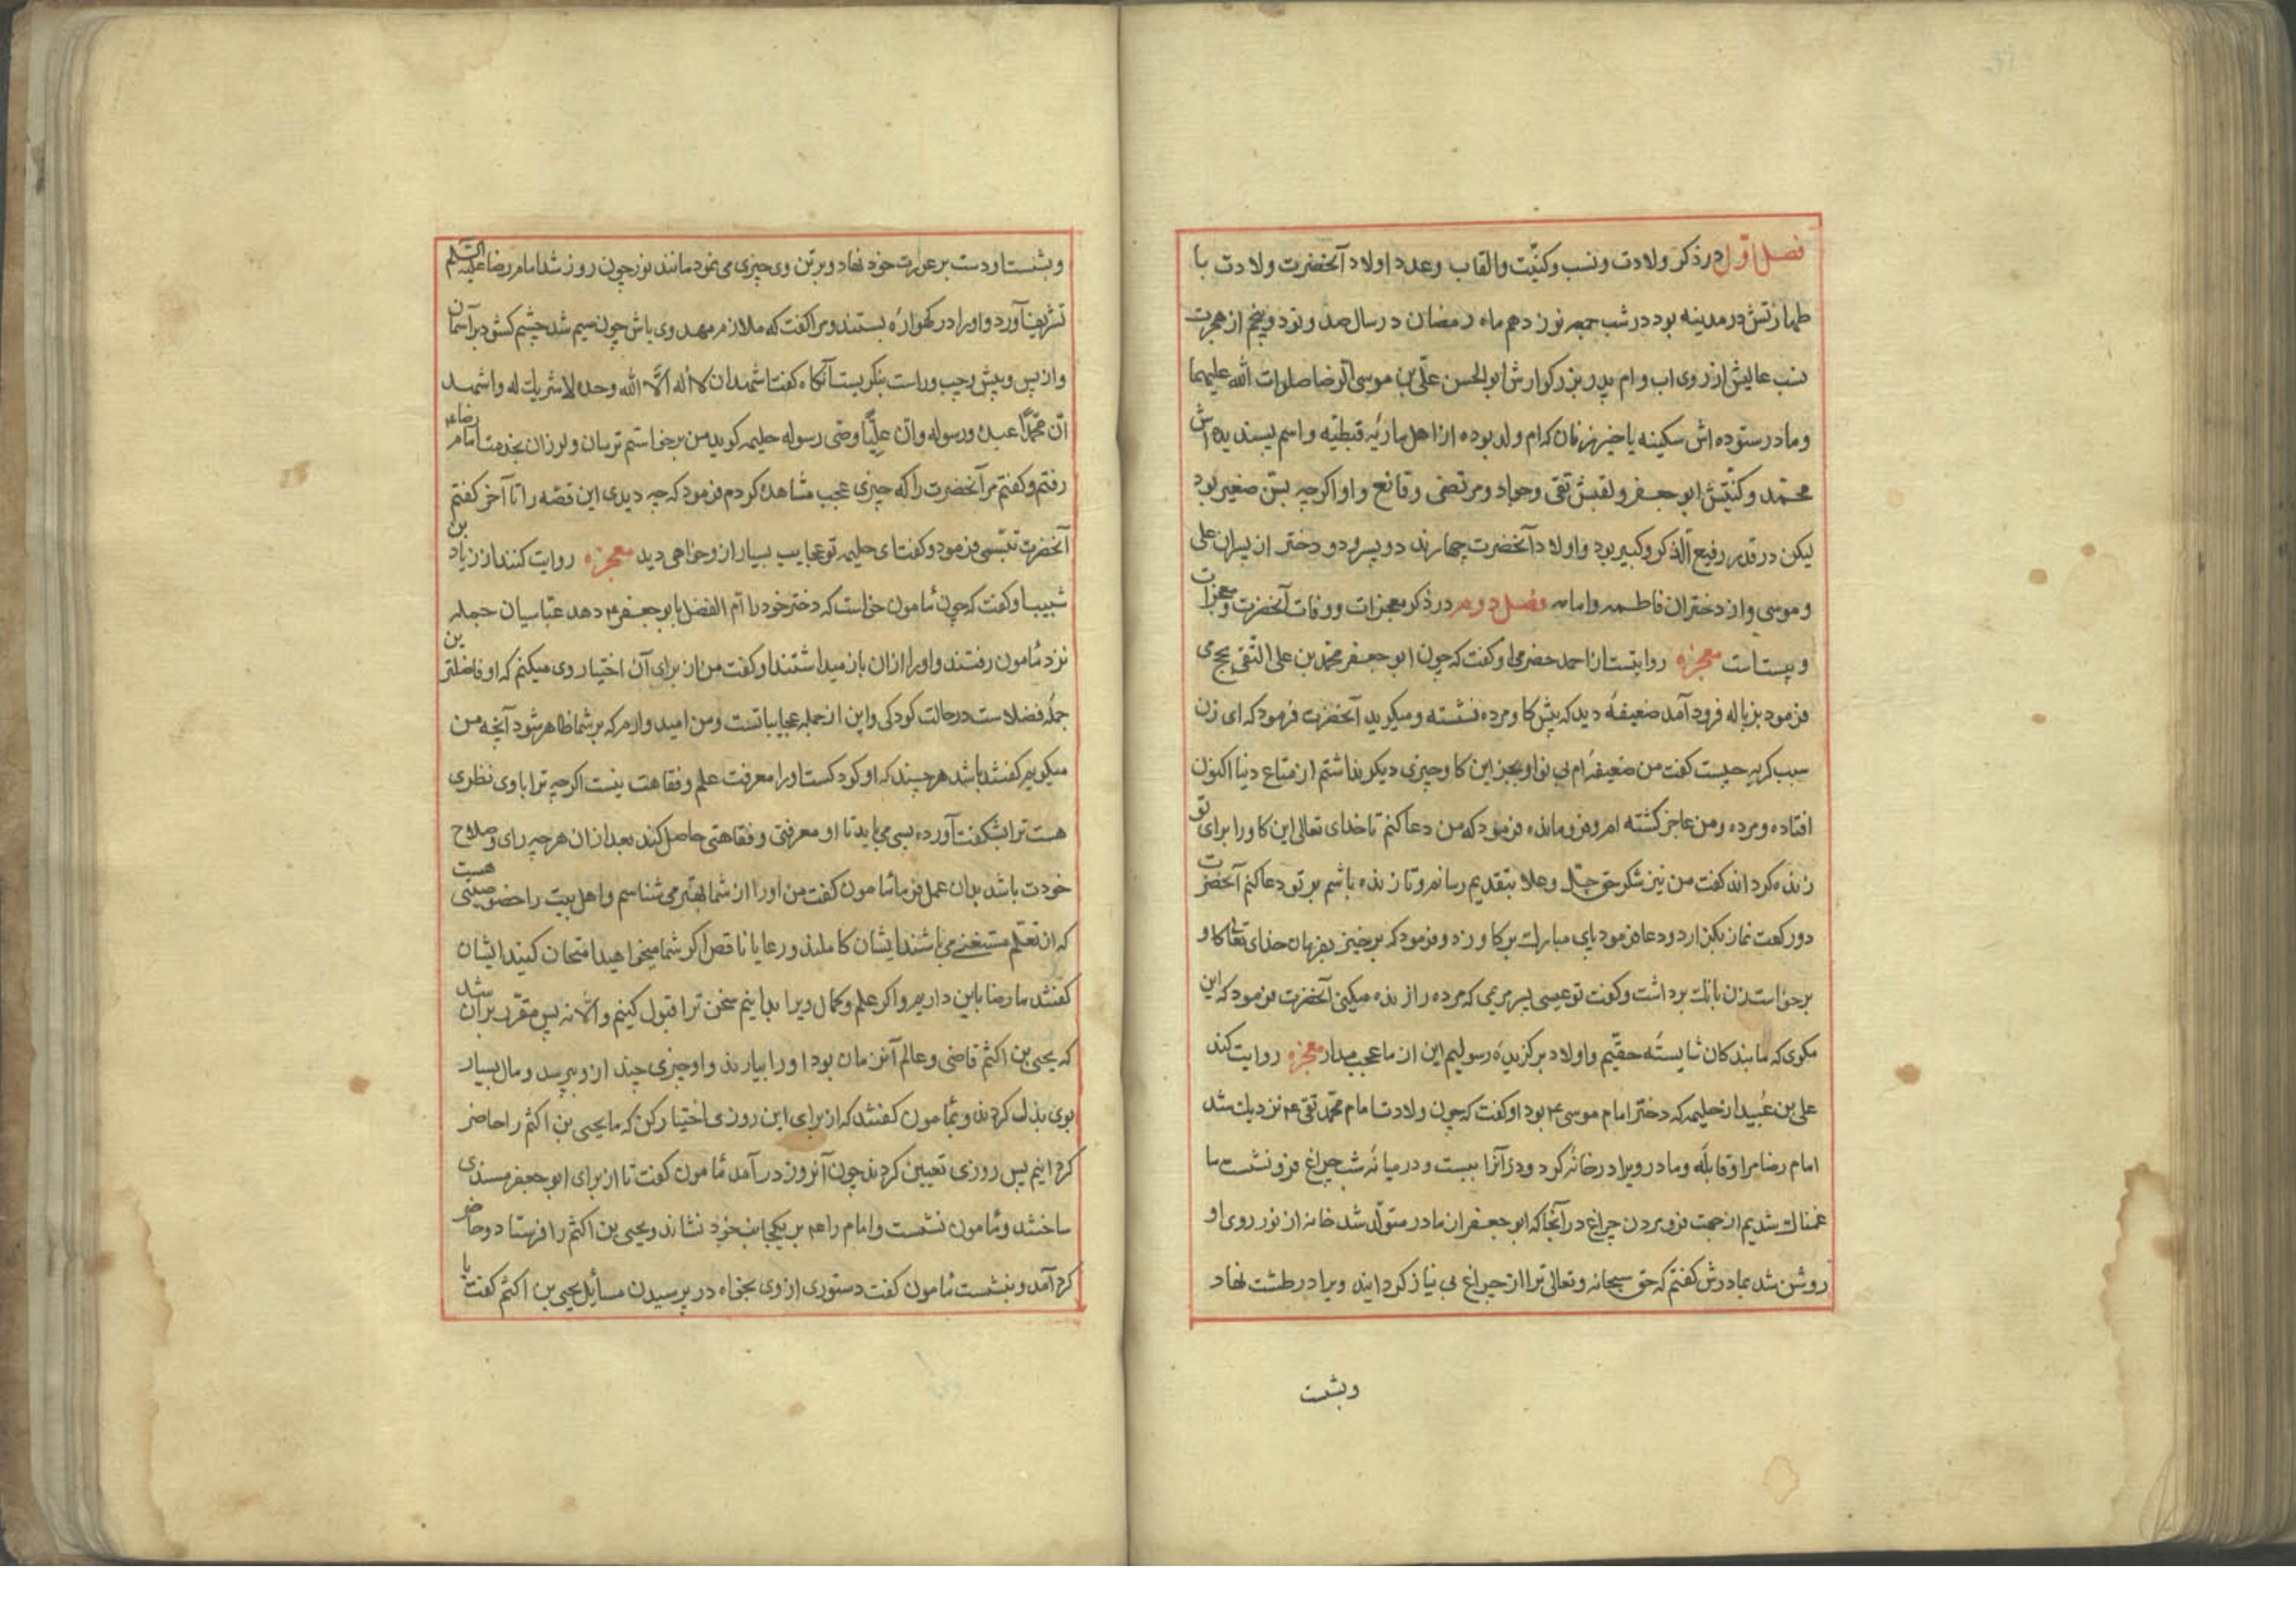 فصل اول در ذکر ولادت و نسب و کنیّت و القاب و عدد اولاد آنحضرت ولادت با
طهارتش در مدینه بود در شب جمعه نوزدهم ماه رمضان در سال صد و نود و پنجم از هجرت
نسب عالیش از روی اب و ام پدر بزرکوارش ابو الحسن علّی بن موسی الرضا صلوات الله علیهما
و مادر ستوده اش سکینه یا خیزران که ام ولد بوده از اهل ماریه قبطیّه و اسم پسندیده اش
محمّد و کنیّتش ابو جعفر و لقبش تقی و جواد و مرتضی و قانع و او اکرچه بسّن صغیر بود
لیکن در قدر رفیع الّذکر و کبیر بود و اولاد آنحضرت چهارند دو پسر و دو دختر از پسران علی
و موسی و از دختران فاطمه و امامه فصل دوم در ذکر معجزات و وفات آنحضرت و معجزات
و بیست است معجزه روایتست از احمد حضرمی او کفت که چون ابو جعفر محمّد بن علی التقی بحج می
فرمود بزباله فرود آمد ضعیفهٔ دید که پیش کاو مرده نشسته و میکرید آنحضرت فرمود که ای زن
سبب کریه چیست کفت من ضعیفهٔ ام بی نوا و بجز این کاو چیزی دیکر نداشتم از متاع دنیا اکنون
افتاده و مرده و من عاجز کشته ام و فرومانده فرمود که من دعا کنم تا خدای تعالی این کاو را برای تو
زنده کرداند کفت من نیز شکر حق جلّ و علا بتقدیم رسانم و تا زنده باشم بر تو دعا کنم آنحضرت
دو رکعت نماز بکزارد و دعا فرمود پای مبارک بر کاو زد و فرمود که برخیز بفرمان خدای تعالی کاو
برخواست زن بانک برداشت و کفت تو عیسی پسر مریمی که مرده را زنده میکنی آنحضرت فرمود که این
مکوی که ما بندکان شایستهٔ حقّیم و اولاد برکزیدهٔ رسولیم این از ما عجب مدار معجزه روایت کند
علی بن عبید از حلیمه که دختر امام موسی ع بود او کفت که چون ولادت امام محمّد تقی ع نزدیک شد
امام رضا مرا و قابله و مادر ویرا در خانهٔ کرد و در آنرا ببست و در میانهٔ شب چراغ فرو نشست ما
غمناک شدیم از جهت فرو مردن چراغ در آنجا که ابو جعفر از مادر متولّد شد خانه از نور روی او
روشن شد بمادرش کفتم که حق سبحانه و تعالی ترا از چراغ بی نیاز کردانید ویرا در طشت نهاد
وبنشست
و بنشست او دست بر عورت خود نهاد و بر تن وی چیزی می نمود مانند نور چون روز شد امام رضا علیه السلم
تشریف آورد و او را در کهوارهٔ بستند و مرا کفت که ملازم مهد وی باش چون سیم شد چشم کشود بر آسمان
و از پس و پیش و چپ و راست بنکریست آنکاه کفت اشهد ان لا اله الّا الله وحده لا شریک له و اشهد
انّ محمّدًا عبده و رسوله و انّ علیًّا وصّی رسوله حلیمه کوید من برخواستم ترسان و لرزان بخدمت امام رضا ع
رفتم و کفتم مر آنحضرت را که چیزی عجب مشاهده کردم فرمود که چه دیدی این قصّه را تا آخر کفتم
آنحضرت تبسّمی فرمود و کفت ای حلیمه تو عجایب بسیار از و خواهی دید معجزه روایت کنند از زیاد بن
شبیب او کفت که چون مأمون خواست که دختر خود را امّ الفضل بابو جعفر ع دهد عبّاسیان جمله
نزد مأمون رفتند و او را از ان باز میداشتند او کفت من از برای آن اختیار وی میکنم که او فاضلترین
جملهٔ فضلاست در حالت کودکی و این از جمله عجایباتست و من امید وارم که بر شما ظاهر شود آنچه من
میکویم کفتند باشد هر چند که او کودکست او را معرفت علم و فقاهت نیست اکرچه ترا با وی نظری
هست ترا بشکفت آورده بسی می باید تا او معرفتی و فقاهتی حاصل کند بعد از ان هر چه رای و صلاح
خودت باشد بدان عمل فرما مأمون کفت من او را از شما بهتر می شناسم و اهل بیت را خصوصیّتی هست
که از تعلّم مستغنی می باشند ایشان کاملند و رعایا ناقص اکر شما میخواهید امتحان کنید ایشان
کفتند ما رضا باین داریم و اکر علم و کمال ویرا بدانیم سخن ترا قبول کنیم و الّا نه پس مقرّر بران شد
که یحیی بن اکثم قاضی و عالم آنزمان بود او را بیارند و او چیزی چند از و بپرسد و مال بسیار
بوی بذل کردند و بمأمون کفتند که از برای این روزی اختیار کن که ما یحیی بن اکثم را حاضر
کردانیم پس روزی تعیین کردند چون آنروز در آمد مأمون کفت تا از برای ابو جعفر مسندی
ساختند و مأمون نشست و امام را ع بر یکجانب خود نشاند و یحیی بن اکثم را فرستاد و حاضر
کرد آمد و بنشست مأمون کفت دستوری از وی بخواه در پرسیدن مسائل یحیی بن اکثم کفت یا